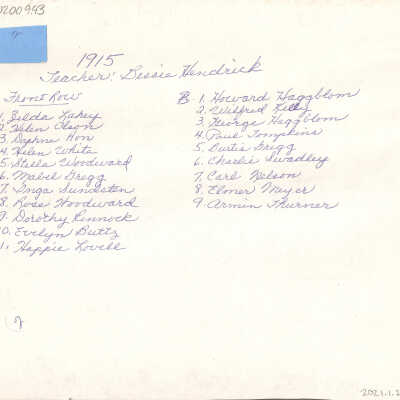 200943
1915
Teacher: Bessie Hendrick
Front Row
1. Zelda Lakey
2. Helen Olson
3. Daphne Hon
4. Helen White
5. Stella Woodward
6. Mabel Gregg
7. Inga Sundsten
8. Rose Woodward
9. Dorothy Pinnock
10. Evelyn Buttz
11. Happie Lovell
B. 1. Howard Haggblom
2. Wilfred Kelly
3. George Haggblom
4. Paul Tompkins
5. Curtis Gregg
6. Charlie Swadley
7. Carl Nelson
8. Elmer Meyer
9. Armin Thurner
2021.1.2